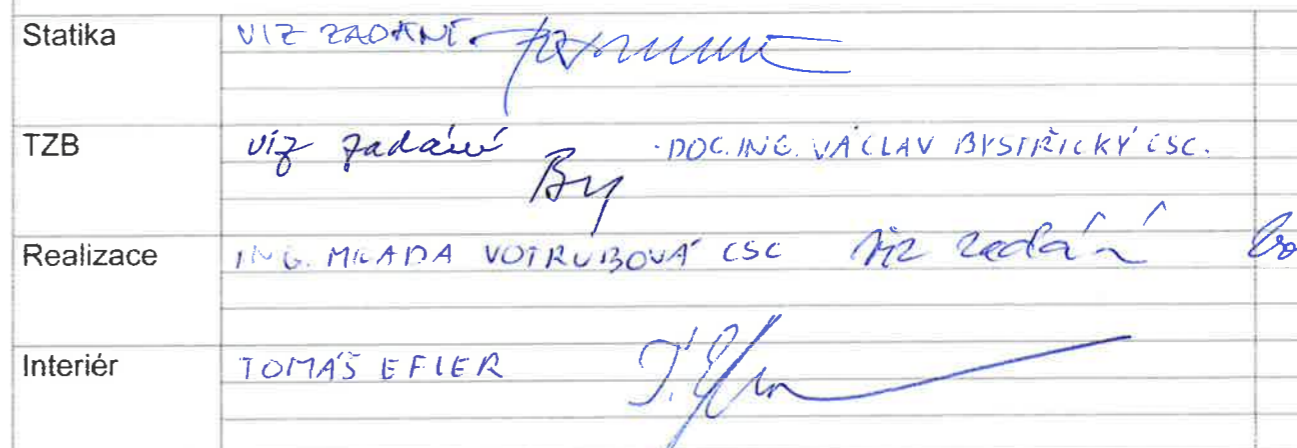 Statika VIZ ZADÁNÍ.
TZB viz zadání By DOC. ING. VÁCLAV BYSTŘICKÝ CSC.
Realizace ING. MILADA VOTRUBOVÁ CSC viz zadání
Interiér TOMÁŠ EFLER